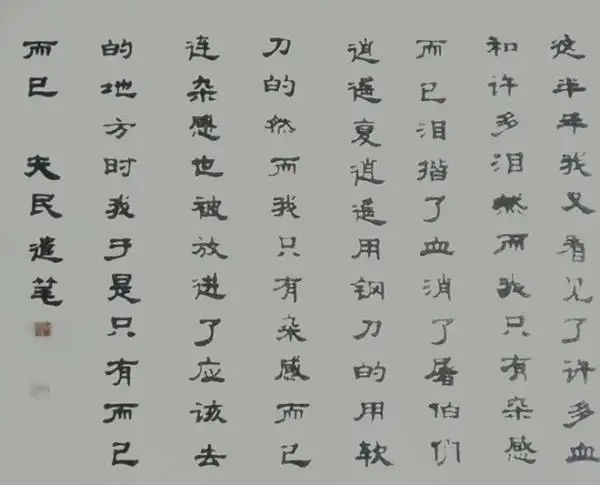 这半年我又看见了许多血
和许多泪然而我只有杂感
而已泪揩了血消了屠伯们
逍遥复逍遥用钢刀的用软
刀的然而我只有杂感而已
连杂感也被放进了应该去
的地方时我于是只有而已
而已 夫民遣笔